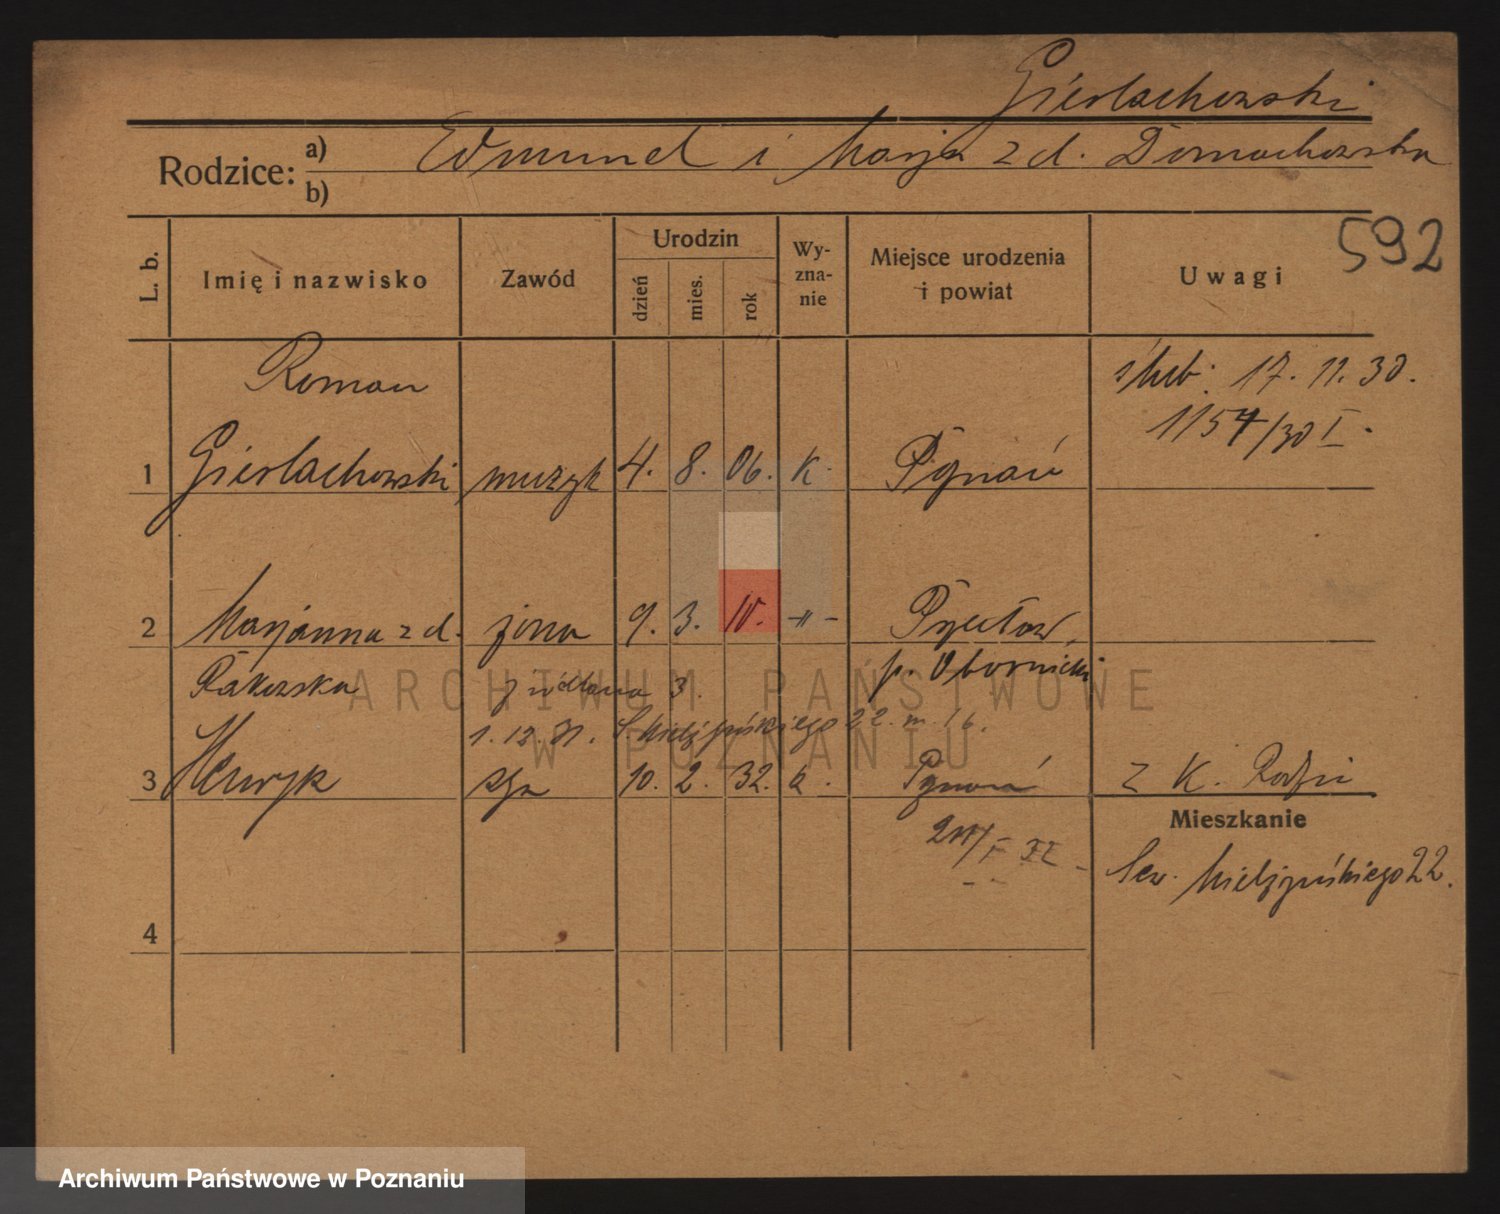 Gierlachowski
Rodzice: a) Edmund i Marja z d. Domachowska
b)
592
L. b. Imię i nazwisko Zawód Urodzin dzień mies. rok Wy-zna-nie Miejsce urodzenia i powiat Uwagi
Roman
ślub: 17. 11. 30.
1157/30 I.
1 Gierlachowski muzyk 4. 8. 06. k. Poznań
2 Marjanna z d. żona 9. 3. 10. -"-
Rakowska 3. p. Obornicki
1. 12. 31. S. Mielżyńskiego 22. m. 16.
3 Henryk syn 10. 2. 32. Poznań z K. Rodzin
Mieszkanie
Sew. Mielżyńskiego 22.
4
ARCHIWUM PAŃSTWOWE
W POZNANIU
Archiwum Państwowe w Poznaniu